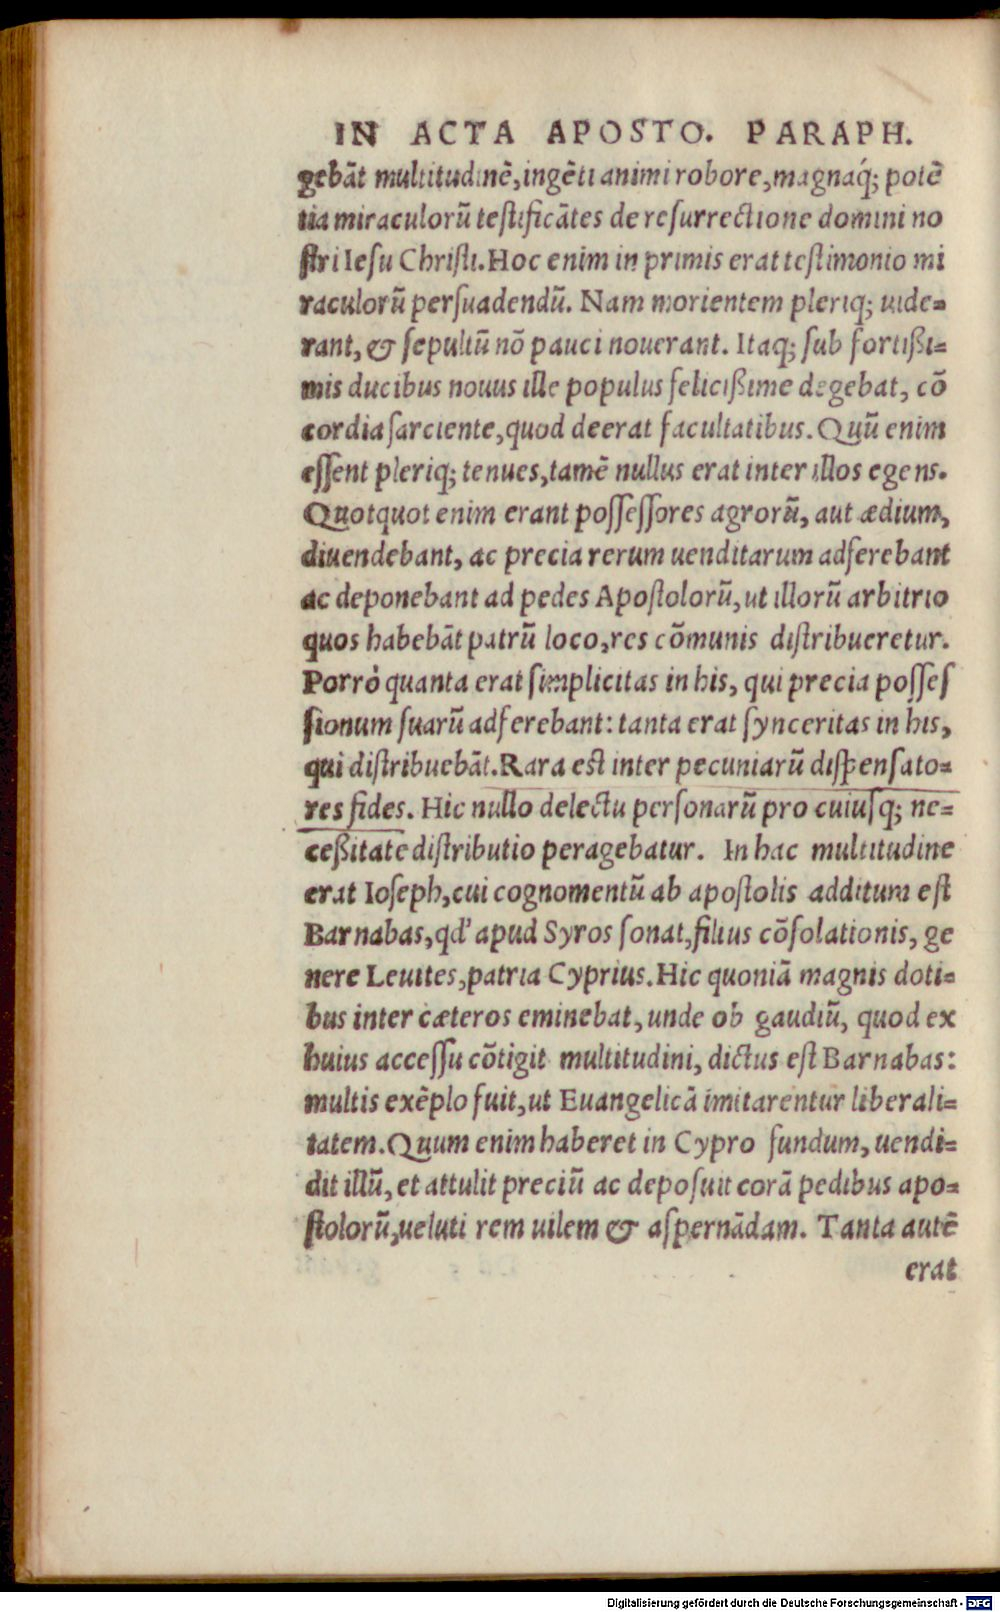 IN ACTA APOSTO. PARAPH.
gebāt multitudinē, ingēti animi robore, magnaq́; potē
tia miraculorū testificātes de resurrectione domini no
stri Iesu Christi. Hoc enim in primis erat testimonio mi
raculorū persuadendū. Nam morientem pleriq; uide=
rant, & sepultū nō pauci nouerant. Itaq; sub fortißi=
mis ducibus nouus ille populus felicißime degebat, cō
cordia sarciente, quod deerat facultatibus. Quū enim
essent pleriq; tenues, tamē nullus erat inter illos egens.
Quotquot enim erant possessores agrorū, aut ædium,
diuendebant, ac precia rerum uenditarum adferebant
ac deponebant ad pedes Apostolorū, ut illorū arbitrio
quos habebāt patrū loco, res cōmunis distribueretur.
Porrò quanta erat simplicitas in his, qui precia posses
sionum suarū adferebant: tanta erat synceritas in his,
qui distribuebāt. Rara est inter pecuniarū dispensato=
res fides. Hic nullo delectu personarū pro cuiusq; ne=
ceßitate distributio peragebatur. In hac multitudine
erat Ioseph, cui cognomentū ab apostolis additum est
Barnabas, qd' apud Syros sonat, filius cōsolationis, ge
nere Leuites, patria Cyprius. Hic quoniā magnis doti=
bus inter cæteros eminebat, unde ob gaudiū, quod ex
huius accessu cōtigit multitudini, dictus est Barnabas:
multis exēplo fuit, ut Euangelicā imitarentur liberali=
tatem. Quum enim haberet in Cypro fundum, uendi=
dit illū, et attulit preciū ac deposuit corā pedibus apo=
stolorū, ueluti rem uilem & aspernādam. Tanta autē
erat
Digitalisierung gefördert durch die Deutsche Forschungsgemeinschaft - DFG